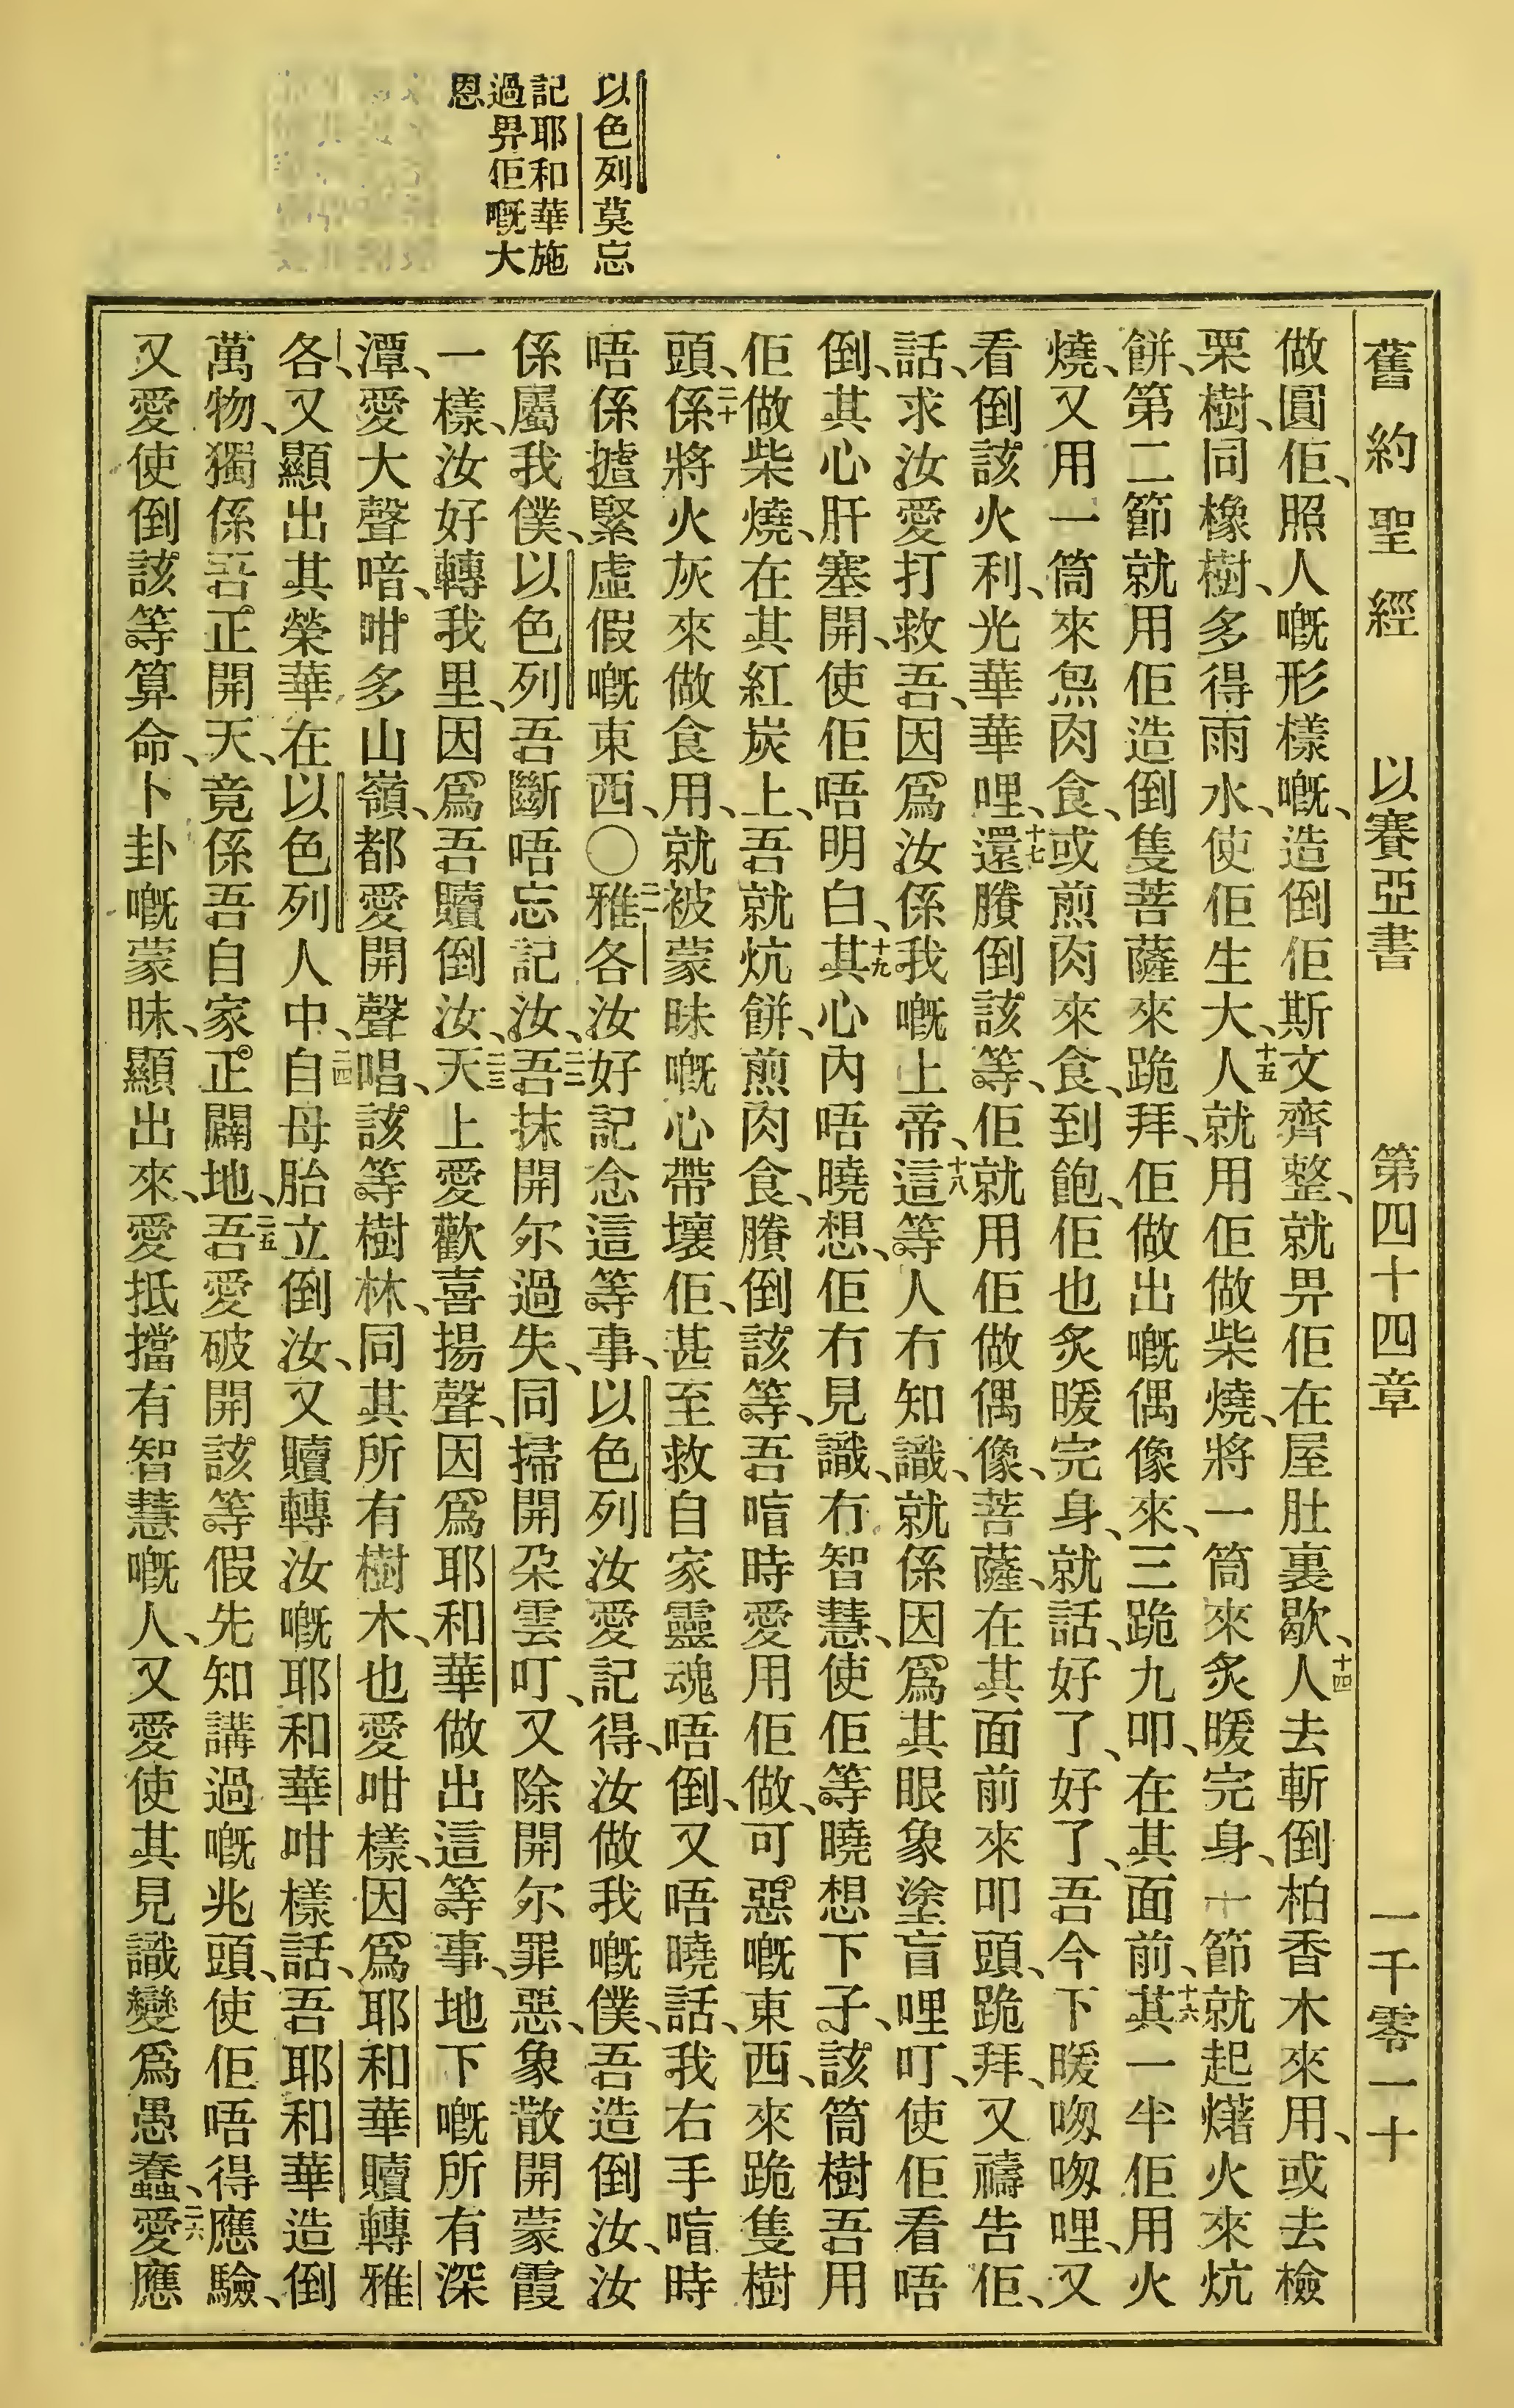 以色列莫忘
記耶和華施
過畀佢嘅大
恩
舊約聖經 以賽亞書 第四十四章 一千零一十
做圓佢、照人嘅形樣嘅、造倒佢斯文齊整、就畀佢在屋肚裏歇、十四人去斬倒柏香木來用、或去檢
栗樹、同橡樹、多得雨水、使佢生大、十五人就用佢做柴燒、將一筒來炙暖完身、一節就起㷮火來炕
餅、第二節就用佢造倒隻菩薩來跪拜、佢做出嘅偶像來、三跪九叩、在其面前、十六其一半佢用火
燒、又用一筒來炰肉食、或煎肉來食、到飽、佢也炙暖完身、就話、好了、好了、吾今下暖吻吻哩、又
看倒該火利、光華華哩、十七還賸倒該等、佢就用佢做偶像、菩薩、在其面前來叩頭、跪拜、又禱告佢、
話、求汝愛打救吾、因爲汝係我嘅上帝、十八這等人冇知識、就係因爲其眼象塗盲哩叮、使佢看唔
倒、其心肝塞開、使佢唔明白、十九其心內唔曉想、佢冇見識、冇智慧、使佢等曉想下子、該筒樹吾用
佢做柴燒、在其紅炭上、吾就炕餅、煎肉食、賸倒該等、吾喑時愛用佢做、可惡嘅東西、來跪隻樹
頭、二十係將火灰來做食用、就被蒙昧嘅心帶壞佢、甚至救自家靈魂唔倒、又唔曉話、我右手喑時
唔係摣緊虛假嘅東西、〇二一雅各汝好記念這等事、以色列汝愛記得、汝做我嘅僕、吾造倒汝、汝
係屬我僕、以色列吾斷唔忘記汝、二二吾抹開尔過失、同掃開朶雲叮、又除開尔罪惡、象散開蒙霞
一樣、汝好轉我里、因爲吾贖倒汝、二三天上愛歡喜揚聲、因爲耶和華做出這等事、地下嘅所有深
潭、愛大聲喑、咁多山嶺、都愛開聲唱、該等樹林、同其所有樹木、也愛咁樣、因爲耶和華贖轉雅
各、又顯出其榮華在以色列人中、二四自母胎立倒汝、又贖轉汝嘅耶和華咁樣話、吾耶和華造倒
萬物、獨係吾正開天、竟係吾自家正闢地、二五吾愛破開該等假先知講過嘅兆頭、使佢唔得應驗、
又愛使倒該等算命、卜卦嘅蒙昧、顯出來、愛抵擋有智慧嘅人、又愛使其見識變爲愚蠢、二六愛應